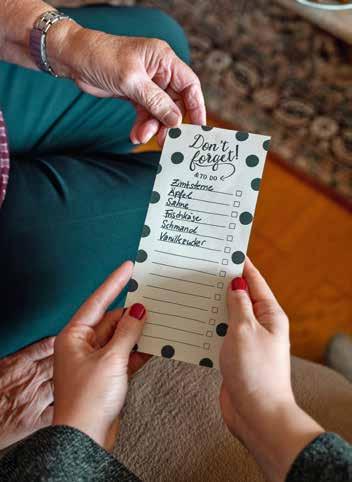 Don't
forget!
TO DO
Zimtsterne
Äpfel
Sahne
Frischkäse
Schmand
Vanillezucker